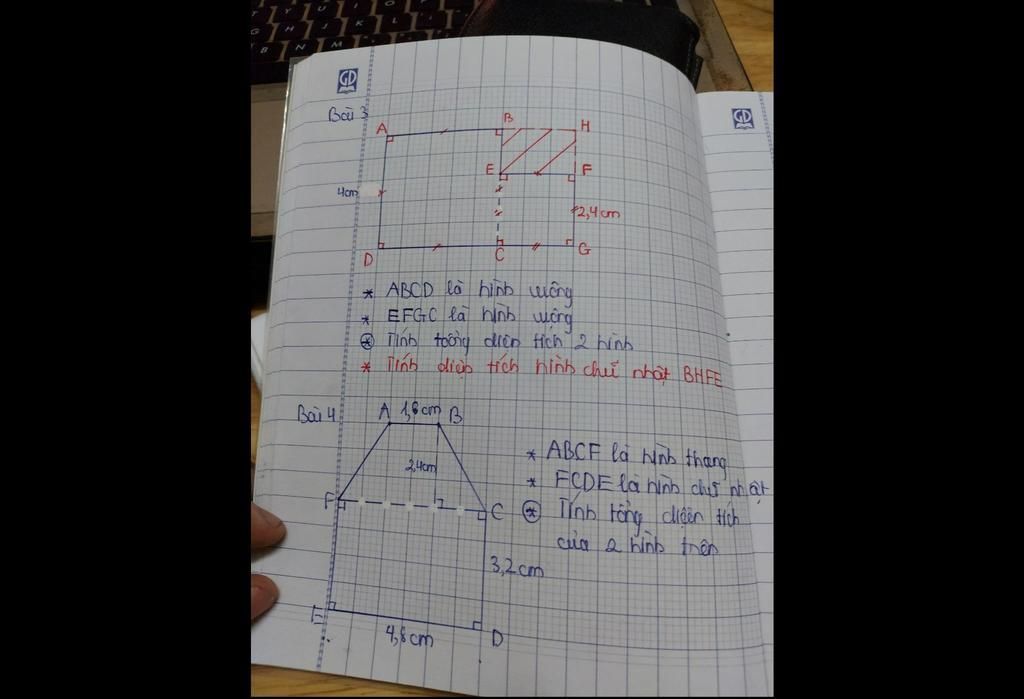 Y U I O
G H J K L
B N M
GD
GD
Bài 3
A B H
4cm
E F
2,4cm
D C G
* ABCD là hình vuông
* EFGC là hình vuông
* Tính tổng diện tích 2 hình
* Tính diện tích hình chữ nhật BHFE
Bài 4
A 1,6cm B
2,4cm
F C
3,2cm
E D
4,8cm
* ABCF là hình thang
* FCDE là hình chữ nhật
* Tính tổng diện tích
của 2 hình trên